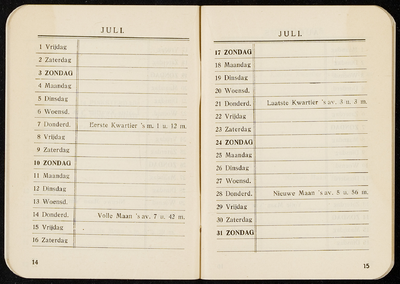 JULI
1 Vrijdag
2 Zaterdag
3 ZONDAG
4 Maandag
5 Dinsdag
6 Woensd.
7 Donderd. Eerste Kwartier 's m. 1 u. 12 m.
8 Vrijdag
9 Zaterdag
10 ZONDAG
11 Maandag
12 Dinsdag
13 Woensd.
14 Donderd. Volle Maan 's av. 7 u. 42 m.
15 Vrijdag
16 Zaterdag
14
JULI
17 ZONDAG
18 Maandag
19 Dinsdag
20 Woensd.
21 Donderd. Laatste Kwartier 's av. 3 u. 3 m.
22 Vrijdag
23 Zaterdag
24 ZONDAG
25 Maandag
26 Dinsdag
27 Woensd.
28 Donderd. Nieuwe Maan 's av. 5 u. 56 m.
29 Vrijdag
30 Zaterdag
31 ZONDAG
15